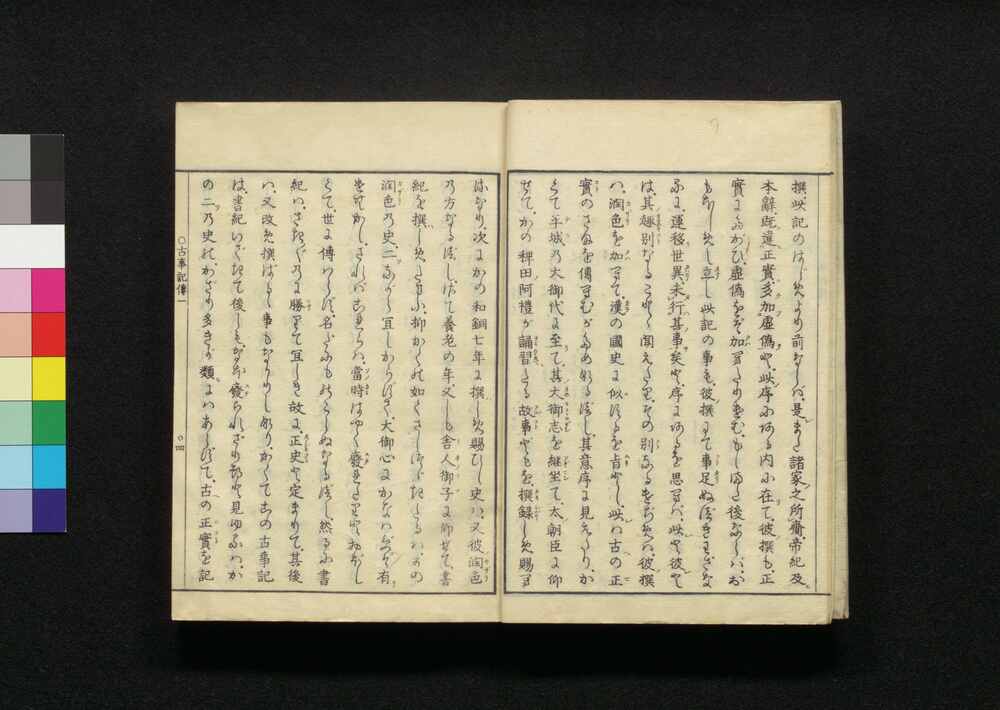 撰ぜ此記のはじめより前ならば、是また諸家之所齎帝紀及
本辭、既違正實、多加虛偽や、此序にある内に在て、彼撰も正
實にたがひ、虛偽をぞ加へたりけむ、もしまた後ならば、お
もほしめし立し此記の事も、彼撰にて事足ぬべきわざな
るに、運移世異、未行其事矣や、序にあるを思へば、此や彼や
は、其趣別なることゝ聞えたり、その別なるをぢめは、彼撰
は、潤色を加へて、漢の國史に似するを旨とし、此は古の正
實のさまを傳へむがためなるべし、其意序に見えたり、か
くて平城の大御代に至て、其大御志を継坐て、太朝臣に仰
せて、かの稗田阿禮が誦習へたる故事どもを、撰録しめ賜へ
はなり、次にかの和銅七年に撰しめ賜ひし史は、又彼潤色
の方なるべし、さて養老の年又しも舎人御子に仰せて、書
紀を撰しめたまふ、抑かくの如くさしつゞきたるは、かの
潤色の史、二ながら宜しからずて、大御心にかなはずぞ有
けむかし、されば古事記は、當時はやく廢れたりやおぼし
くて、世に傳はらず、名だにものこらぬなるべし、然るに書
紀は、さきゞのに勝れて宜しき故に、正史や定まりて、其後
は、又改め撰ばるゝ事もなかりしなり、かくてこの古事記
は、書紀いできて後しも、なほ癈られざめるや見ゆるは、か
の二の史の、かざり多きが類にはあらずて、古の正實を記
○古事記傳一
○四